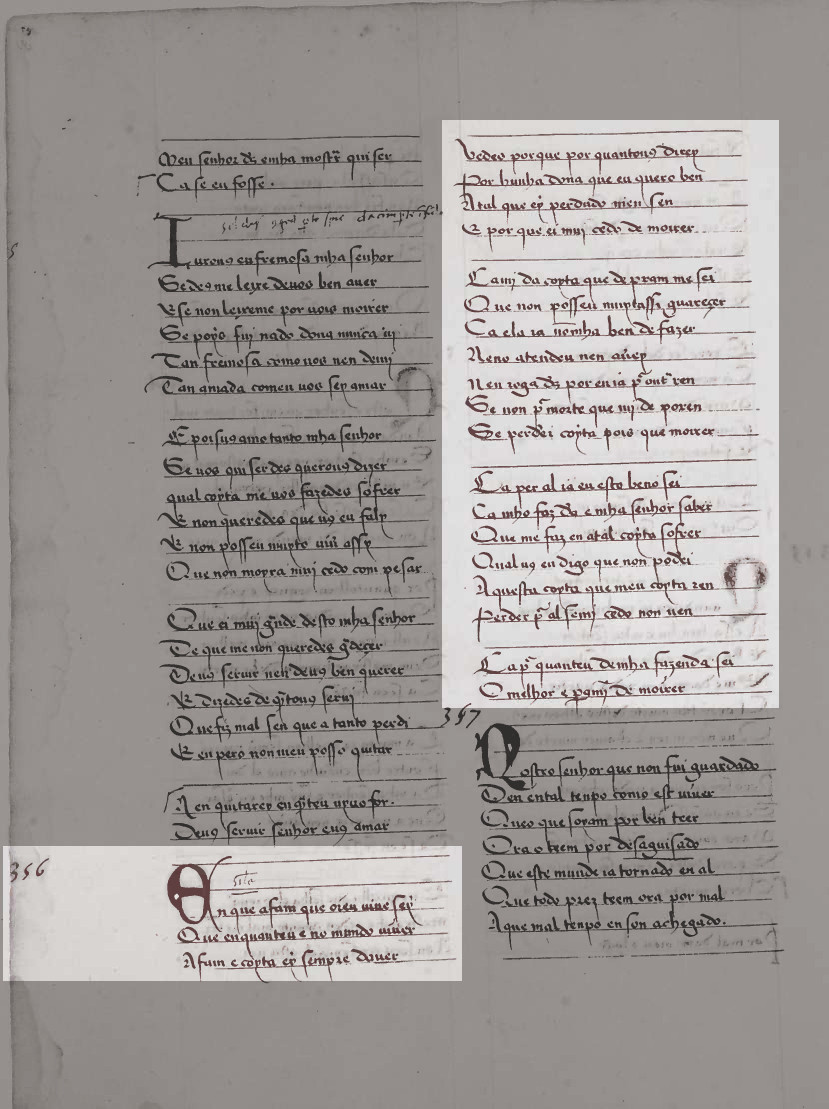 Meu senhor ds̄ emha mostrͬ qui ser
Ca se eu fosse.
I urous eu fremosa mha senhor
Se deꝯ me leixe deuos ben auer
Ese non leixeme por uos moirer
Se poio fuj nado dona nunca uj
Tan fremosa como uos nen demj
Tan amada comeu uos sey amar
E poisuꝯ amo tanto mha senhor
Se uos quiserdes querouꝯ dizer
qual coyta me uos fazedes sofrer
E non queredes que uꝯ eu faly
E non posseu muyto uiuͥ assy
Que non moyra muj cedo com pesar
Que ei muj gͣnde desto mha senhor
De que me non queredes gͣdeçer
Deuꝯ seruir nen deuꝯ ben querer
E dizedes de qͣtouꝯ serui
Que fiz mal sen que a tanto perdi
E en pero non meu posso quitar
Nen quitarey en qͣteu uyuo for.
Deuꝯ seruir senhor euꝯ amar
356
En que afam que oieu uiue sey
Que enquanteu e no mundo uiuer
Afam e coyta ey sempre dauer
Vedes porque por quantouꝯ direy
Por hunha dona que eu quero ben
Atal que ey perdudo men sen
E por que ei muj cedo de moirer
Camj da coyta que de pram me sei
Que non posseu muytassi guareçer
Ca ela ia nonmha ben de fazer
Neno atendeu nen auͥey
Nen roga ds̄ por en ia pͬ outͬ ren
Se non pͬ morte que mj de poren
Se perdei coyta pois que moirer
Ca per al ia eu esto beno sei
Ca mho faz ds̄ e mha senhor saber
Que me faz en atal coyta sofrer
Qual uꝯ en digo que non podei
Aquesta coyta que meu coyta ren
Perder pͬ al semj cedo non uen
Ca pͬ quanteu demha fazenda sei
O melhor e pͬa mj de moirer
357
Nostro senhor que non fui guardado
Den ental tenpo como est uiuer
Queo que soyam por ben teer
Ora o teem por desaguisado
Que este mund e ia tornado en al
Que todo prez teem ora por mal
A que mal tenpo en son achegado.